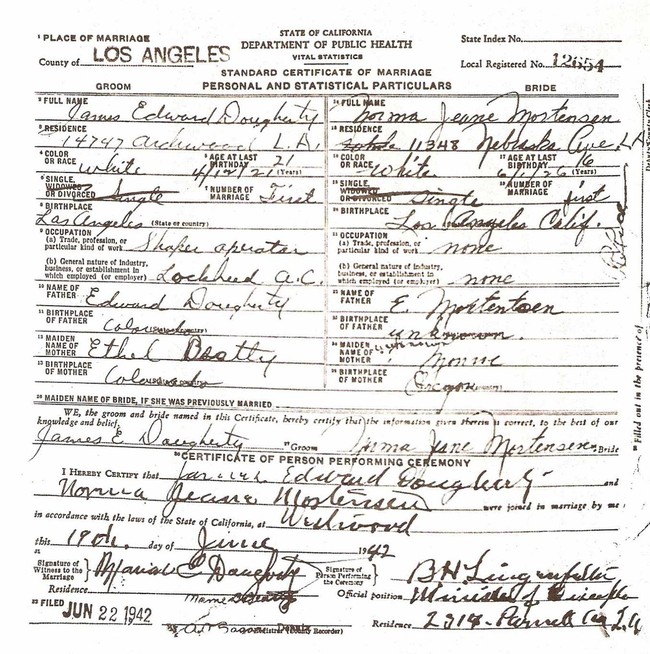 STATE OF CALIFORNIA
DEPARTMENT OF PUBLIC HEALTH
VITAL STATISTICS
STANDARD CERTIFICATE OF MARRIAGE
1 PLACE OF MARRIAGE
County of LOS ANGELES
State Index No.
Local Registered No. 12654
GROOM PERSONAL AND STATISTICAL PARTICULARS BRIDE
FULL NAME James Edward Dougherty
FULL NAME Norma Jeane Mortensen
RESIDENCE 14747 Archwood L.A.
RESIDENCE 11348 Nebraska Ave L.A.
COLOR OR RACE White AGE AT LAST BIRTHDAY 21 (Years) 4/12/21
COLOR OR RACE White AGE AT LAST BIRTHDAY 16 (Years) 6/1/26
SINGLE, WIDOWED OR DIVORCED Single NUMBER OF MARRIAGE First
SINGLE, WIDOWED OR DIVORCED Single NUMBER OF MARRIAGE first
BIRTHPLACE Los Angeles (State or country)
BIRTHPLACE Los Angeles Calif.
OCCUPATION
(a) Trade, profession, or particular kind of work Shaper operator
OCCUPATION
(a) Trade, profession, or particular kind of work none
(b) General nature of industry, business, or establishment in which employed (or employer) Lockheed A.C.
(b) General nature of industry, business, or establishment in which employed (or employer) none
NAME OF FATHER Edward Dougherty
NAME OF FATHER E. Mortensen
BIRTHPLACE OF FATHER Colorado
BIRTHPLACE OF FATHER unknown.
MAIDEN NAME OF MOTHER Ethel Beatty
MAIDEN NAME OF MOTHER Monroe
BIRTHPLACE OF MOTHER Colorado
BIRTHPLACE OF MOTHER Oregon
MAIDEN NAME OF BRIDE, IF SHE WAS PREVIOUSLY MARRIED
WE, the groom and bride named in this Certificate, hereby certify that the information given therein is correct, to the best of our
knowledge and belief.
James E. Dougherty Groom Norma Jeane Mortensen Bride
CERTIFICATE OF PERSON PERFORMING CEREMONY
I HEREBY CERTIFY that Edward Dougherty and
Norma Jeane Mortensen were joined in marriage by me
in accordance with the laws of the State of California, at Westwood
this 19th. day of June 1942
Signature of Witness to the Marriage Marion C Dougherty
Signature of Person Performing the Ceremony B H Lingenfelter
Residence
Official position Minister of
FILED JUN 22 1942
Residence 2314
Registrar (County Recorder)
Filled out in the presence of